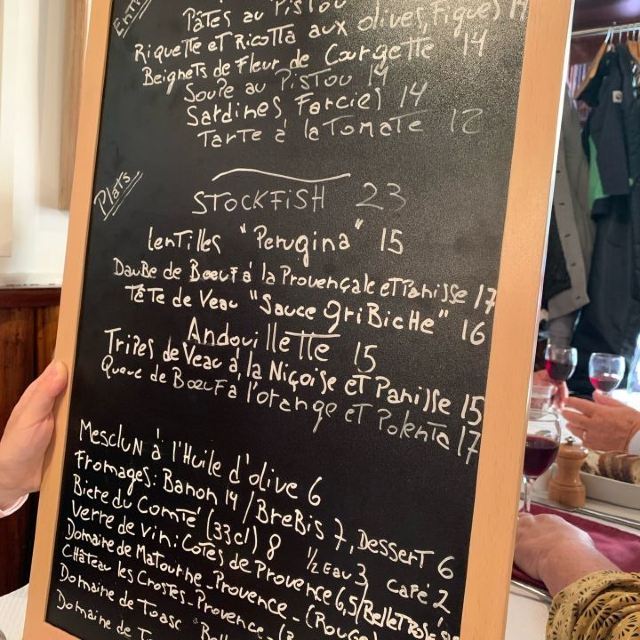 Entr
Pâtes au Pistou
Riquette et Ricotta aux olives, Figues 14
Beignets de Fleur de Courgette 14
Soupe au Pistou 14
Sardines Farcies 14
Tarte à la Tomate 12
Plats
STOCKFISH 23
Lentilles "Perugina" 15
Daube de Boeuf à la Provençale et Panisse 17
Tête de Veau "Sauce GriBicHe" 16
Andouillette 15
Tripes de Veau à la Niçoise et Panisse 15
Queue de Boeuf à l'orange et Polenta 17
Mesclun à l'Huile d'olive 6
Fromages: Banon 14 / BreBis 7, Dessert 6
Biere du Comté (33cl) 8 ½ Eau 3 Café 2
Verre de vin: Cotes de Provence 6,5/Bellet
Domaine de Matourne - Provence - (Rouge)
Château les Crostes - Provence - (
Domaine de Toasc "Bell
Domaine de T